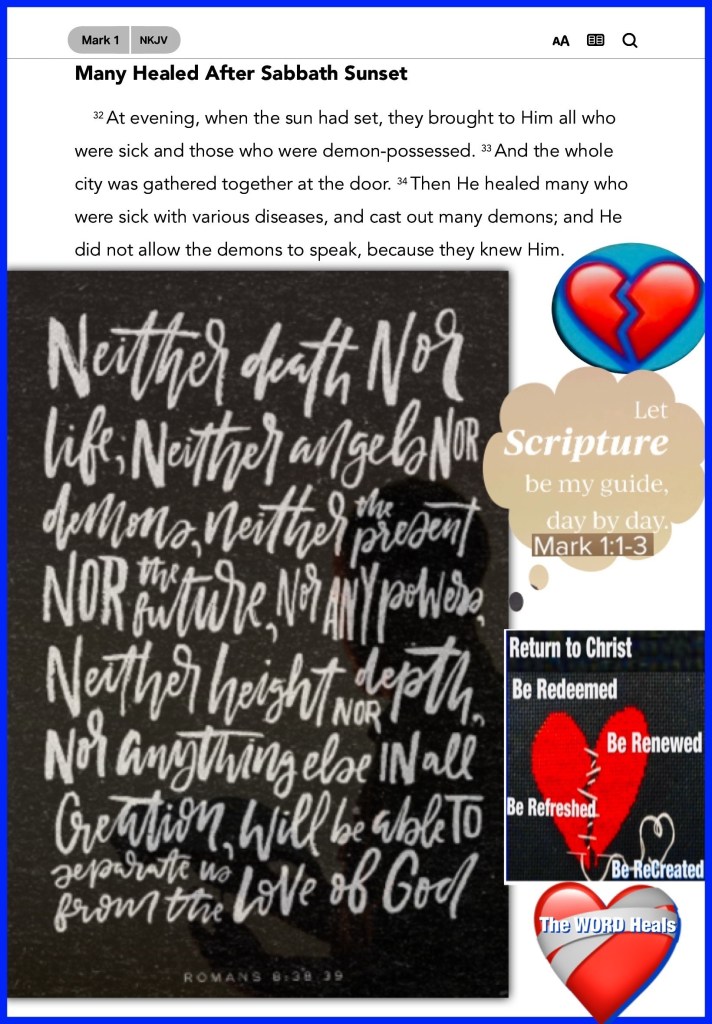 Mark 1 NKJV
AA
Many Healed After Sabbath Sunset
32 At evening, when the sun had set, they brought to Him all who
were sick and those who were demon-possessed. 33 And the whole
city was gathered together at the door. 34 Then He healed many who
were sick with various diseases, and cast out many demons; and He
did not allow the demons to speak, because they knew Him.
Neither death Nor
life; Neither angels NOR
demons, neither the present
NOR the future, Nor ANY powers,
Neither height NOR depth,
Nor anything else IN all
Creation, will be able TO
separate us
from the Love of God
ROMANS 8:38 39
Let
Scripture
be my guide,
day by day.
Mark 1:1-3
Return to Christ
Be Redeemed
Be Renewed
Be Refreshed
Be ReCreated
The WORD Heals